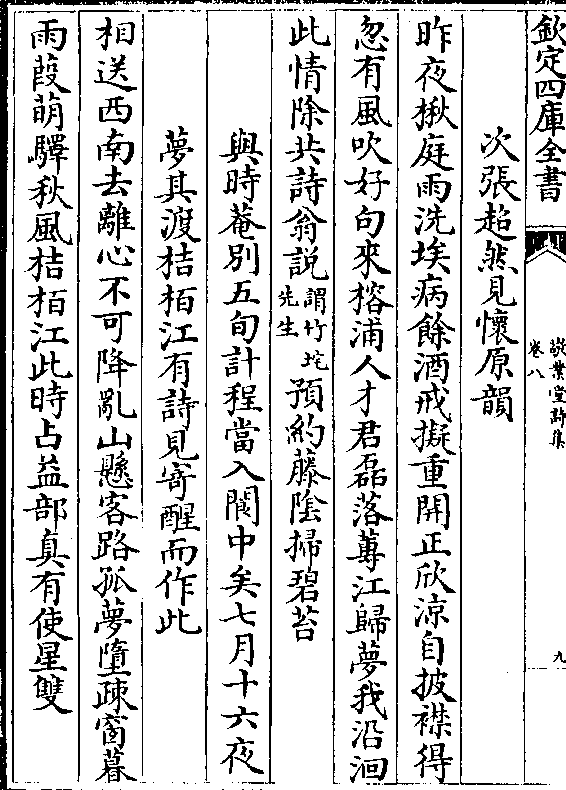 欽定四庫全書
敬業堂詩集
卷八
九
次張超然見懷原韻
昨夜揪庭雨洗埃病餘酒戒擬重開正欣涼自披襟得
忽有風吹好句來榕浦人才君磊落蓴江歸夢我沿洄
此情除共詩翁説謂竹垞先生預約藤陰掃碧苔
與時菴别五旬計程當入閬中矣七月十六夜
夢其渡桔栢江有詩見寄醒而作此
相送西南去離心不可降亂山懸客路孤夢墮疎窗暮
雨葭萌驛秋風桔栢江此時占益部真有使星雙